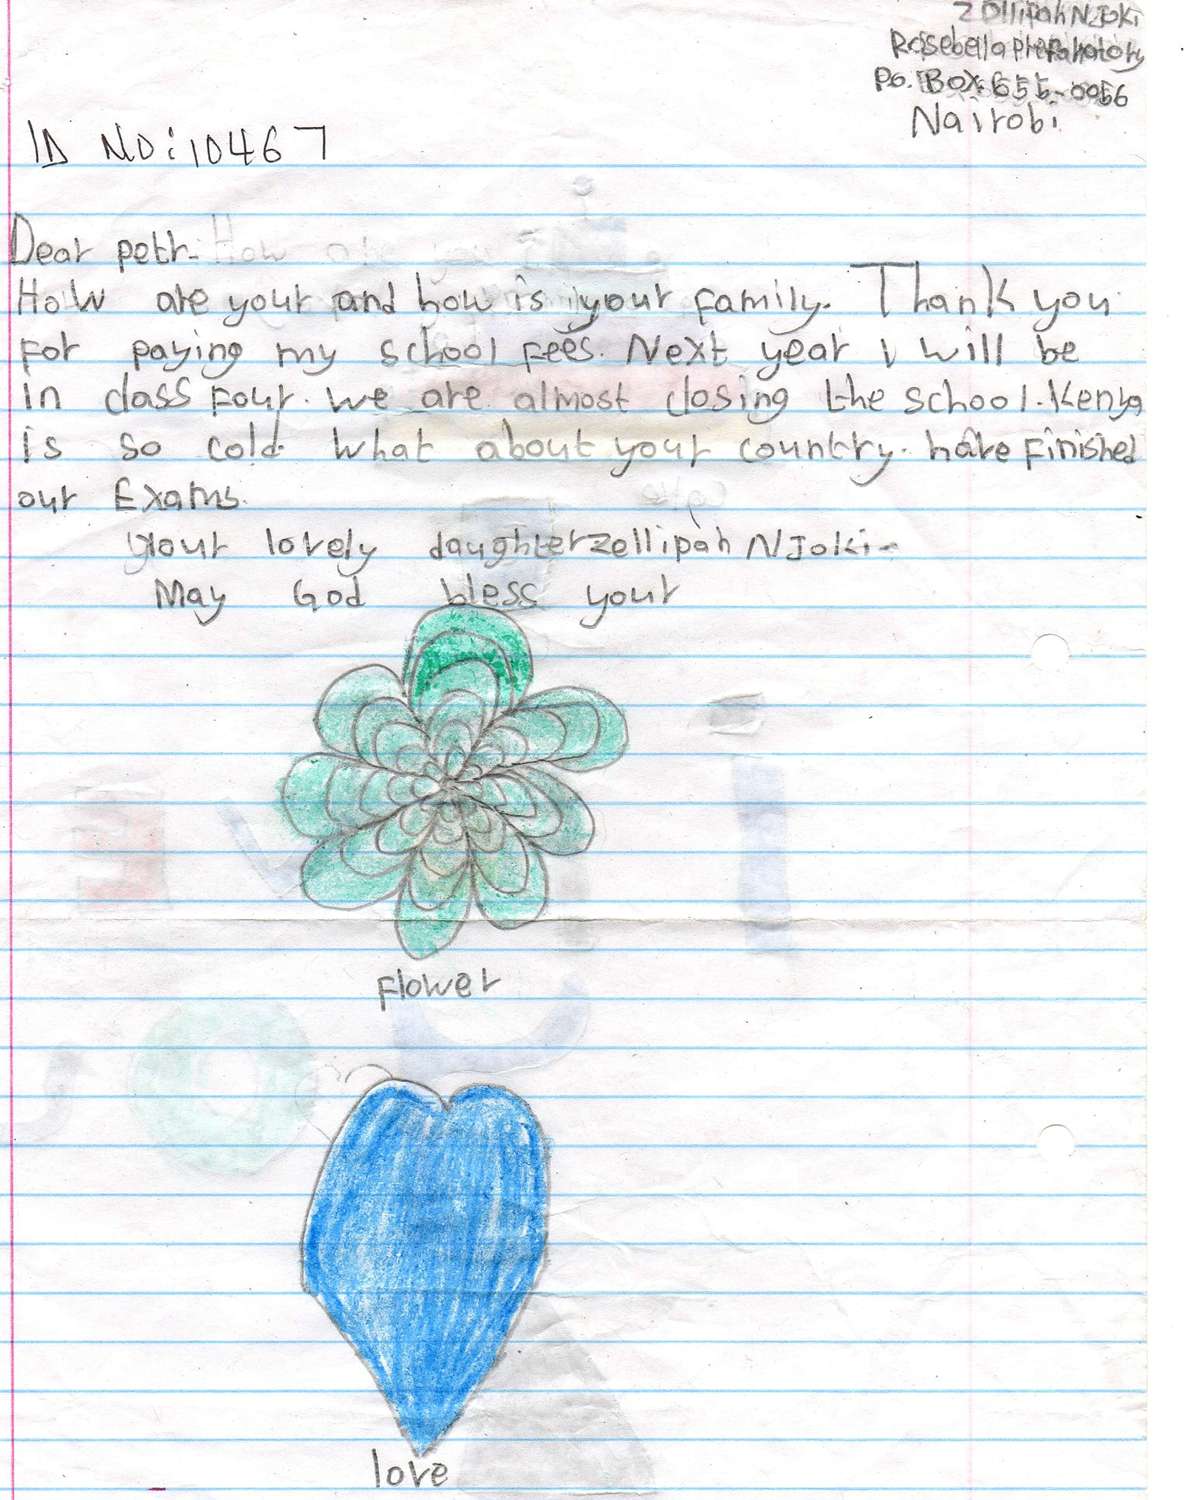 Zollipah NJoki
Rosebella preparatory
Po. Box 655-0056
Nairobi
ID NO: 10467
Dear petr.
How are your and how is your family. Thank you
for paying my school fees. Next year I will be
in class four. we are almost closing the school. Kenya
is so cold. what about your country. have finished
our Exams.
your lovely daughter zellipah NJoki-
May God bless your
flower
love